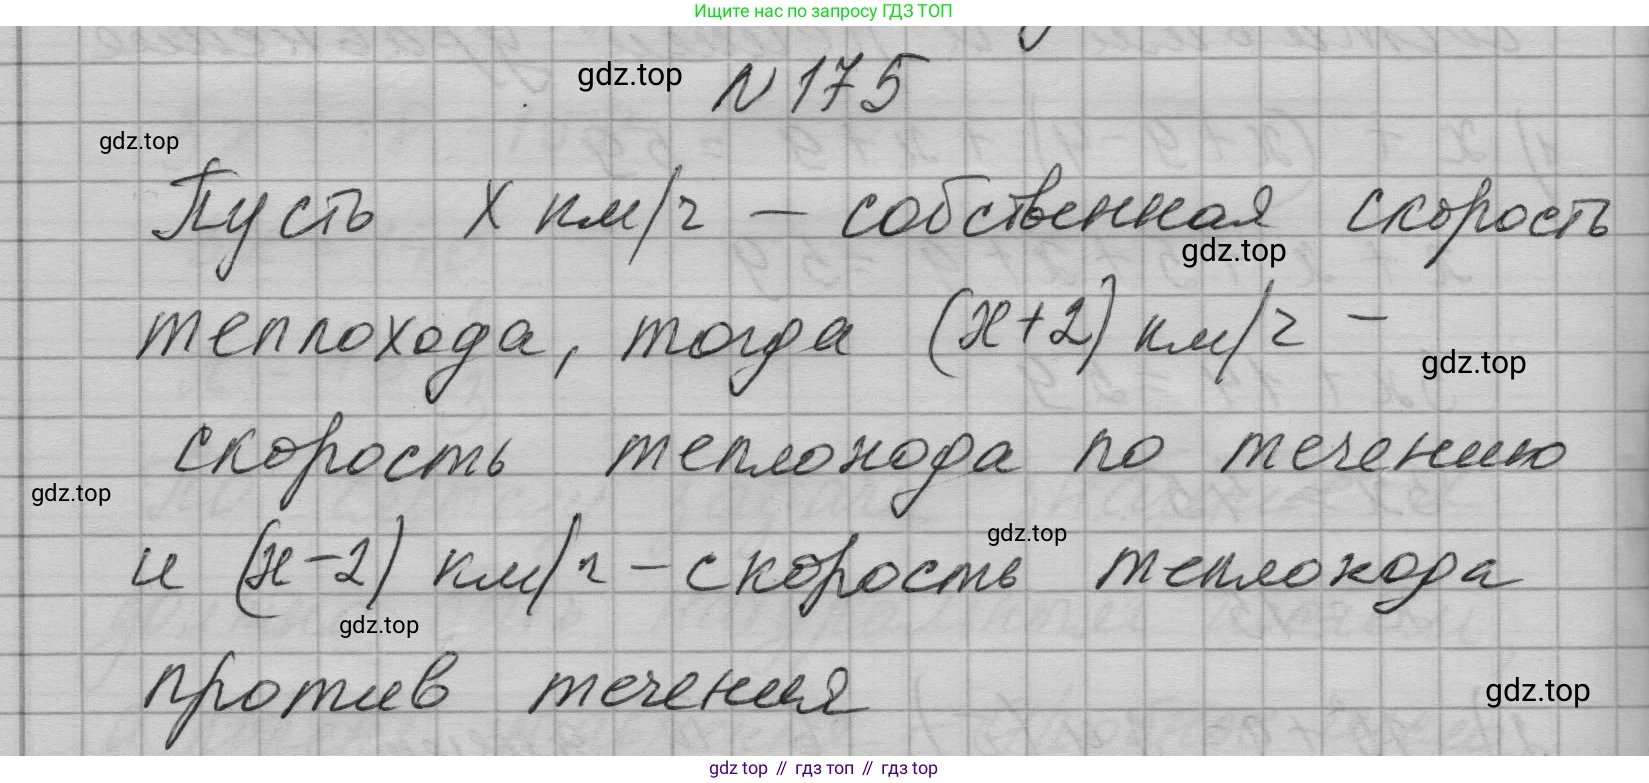 Ищите нас по запросу ГДЗ ТОП
gdz.top
№ 175
gdz.top
Пусть x км/ч — собственная скорость
gdz.top
теплохода, тогда (x+2) км/ч —
gdz.top
скорость теплохода по течению
gdz.top
gdz.top
и (x-2) км/ч — скорость теплохода
gdz.top
против течения
gdz.top
gdz.top // гдз топ // гдз top